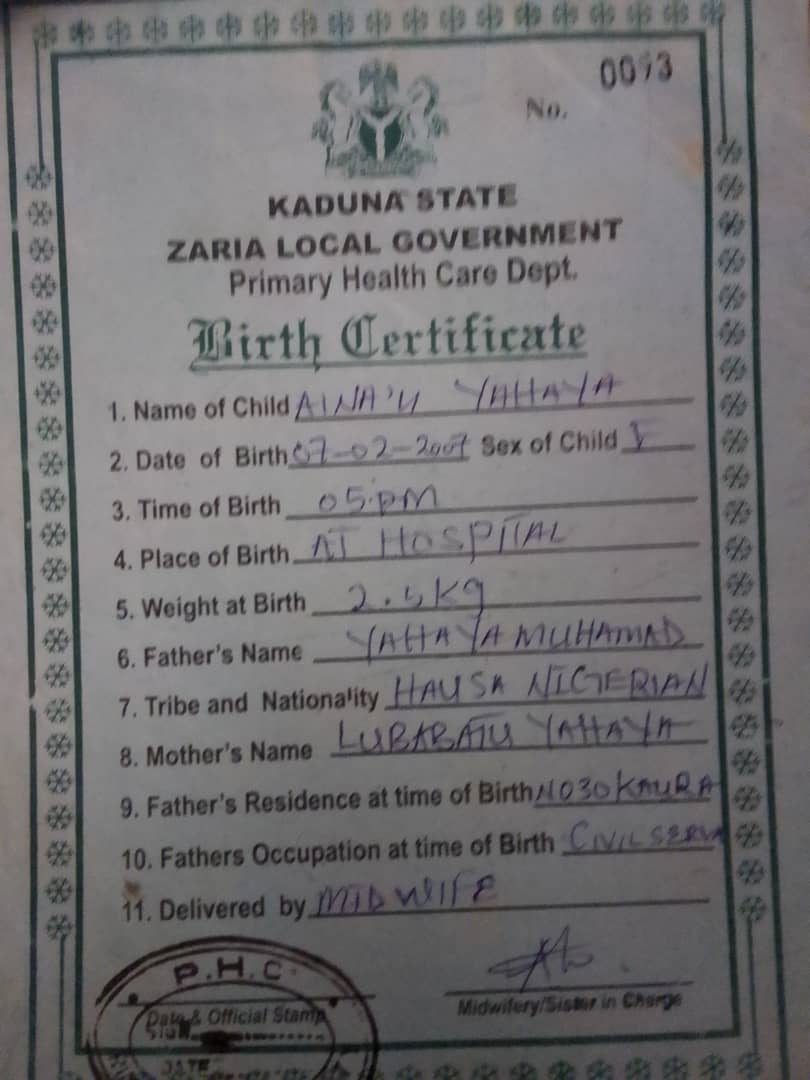 0093
No.
KADUNA STATE
ZARIA LOCAL GOVERNMENT
Primary Health Care Dept.
Birth Certificate
1. Name of Child AINA'U YAHAYA
2. Date of Birth 07-02-2007 Sex of Child
3. Time of Birth 05:PM
4. Place of Birth AT HOSPITAL
5. Weight at Birth 2.5kg
6. Father's Name YAHAYA MUHAMAD
7. Tribe and Nationality HAUSA NIGERIAN
8. Mother's Name LUBABATU YAHAYA
9. Father's Residence at time of Birth NO30 KAURA
10. Fathers Occupation at time of Birth CIVIL SERVA
11. Delivered by MIDWIFE
P.H.C.
Date & Official Stamp
Midwifery/Sister in Charge
DATE